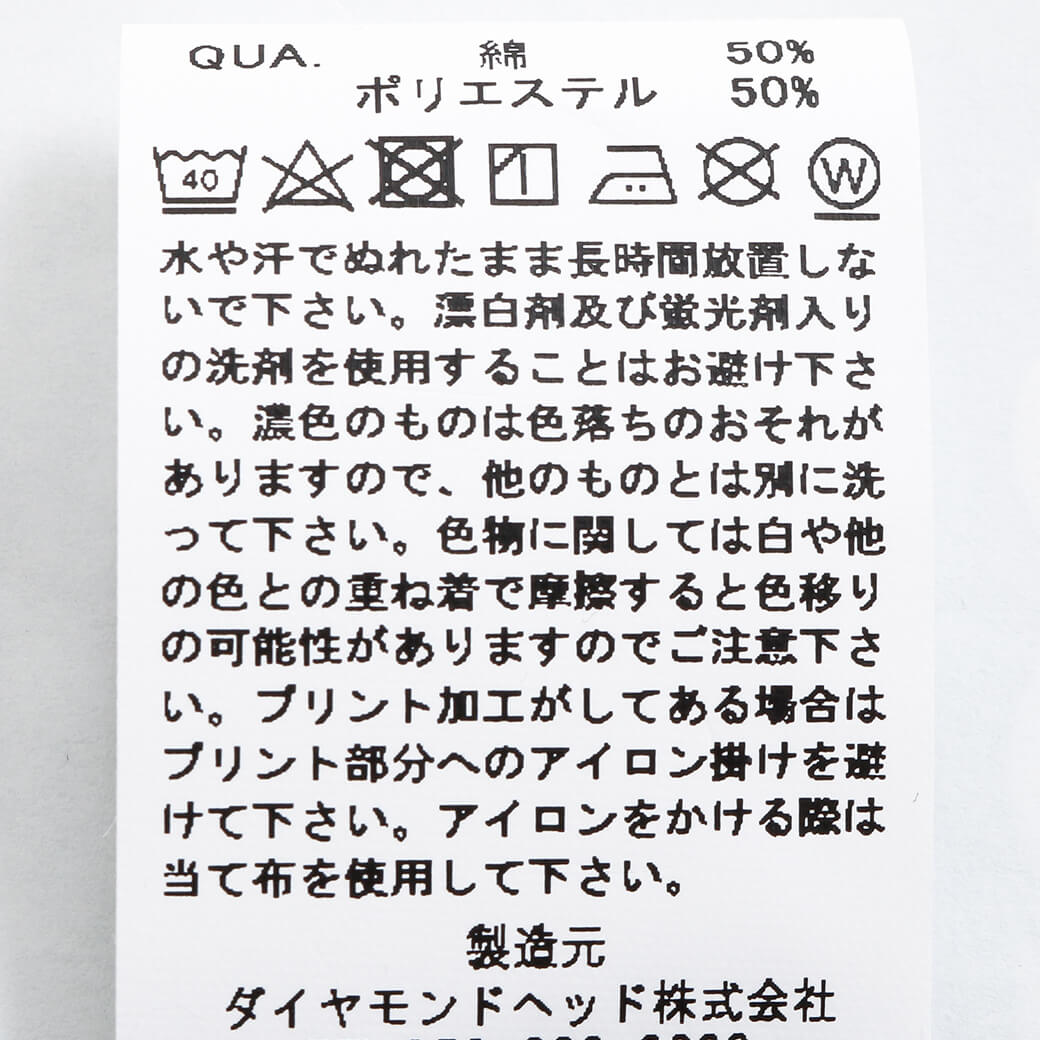 QUA. 綿 50%
ポリエステル 50%
40 W
水や汗でぬれたまま長時間放置しな
いで下さい。漂白剤及び蛍光剤入り
の洗剤を使用することはお避け下さ
い。濃色のものは色落ちのおそれが
ありますので、他のものとは別に洗
って下さい。色物に関しては白や他
の色との重ね着で摩擦すると色移り
の可能性がありますのでご注意下さ
い。プリント加工がしてある場合は
プリント部分へのアイロン掛けを避
けて下さい。アイロンをかける際は
当て布を使用して下さい。
製造元
ダイヤモンドヘッド株式会社